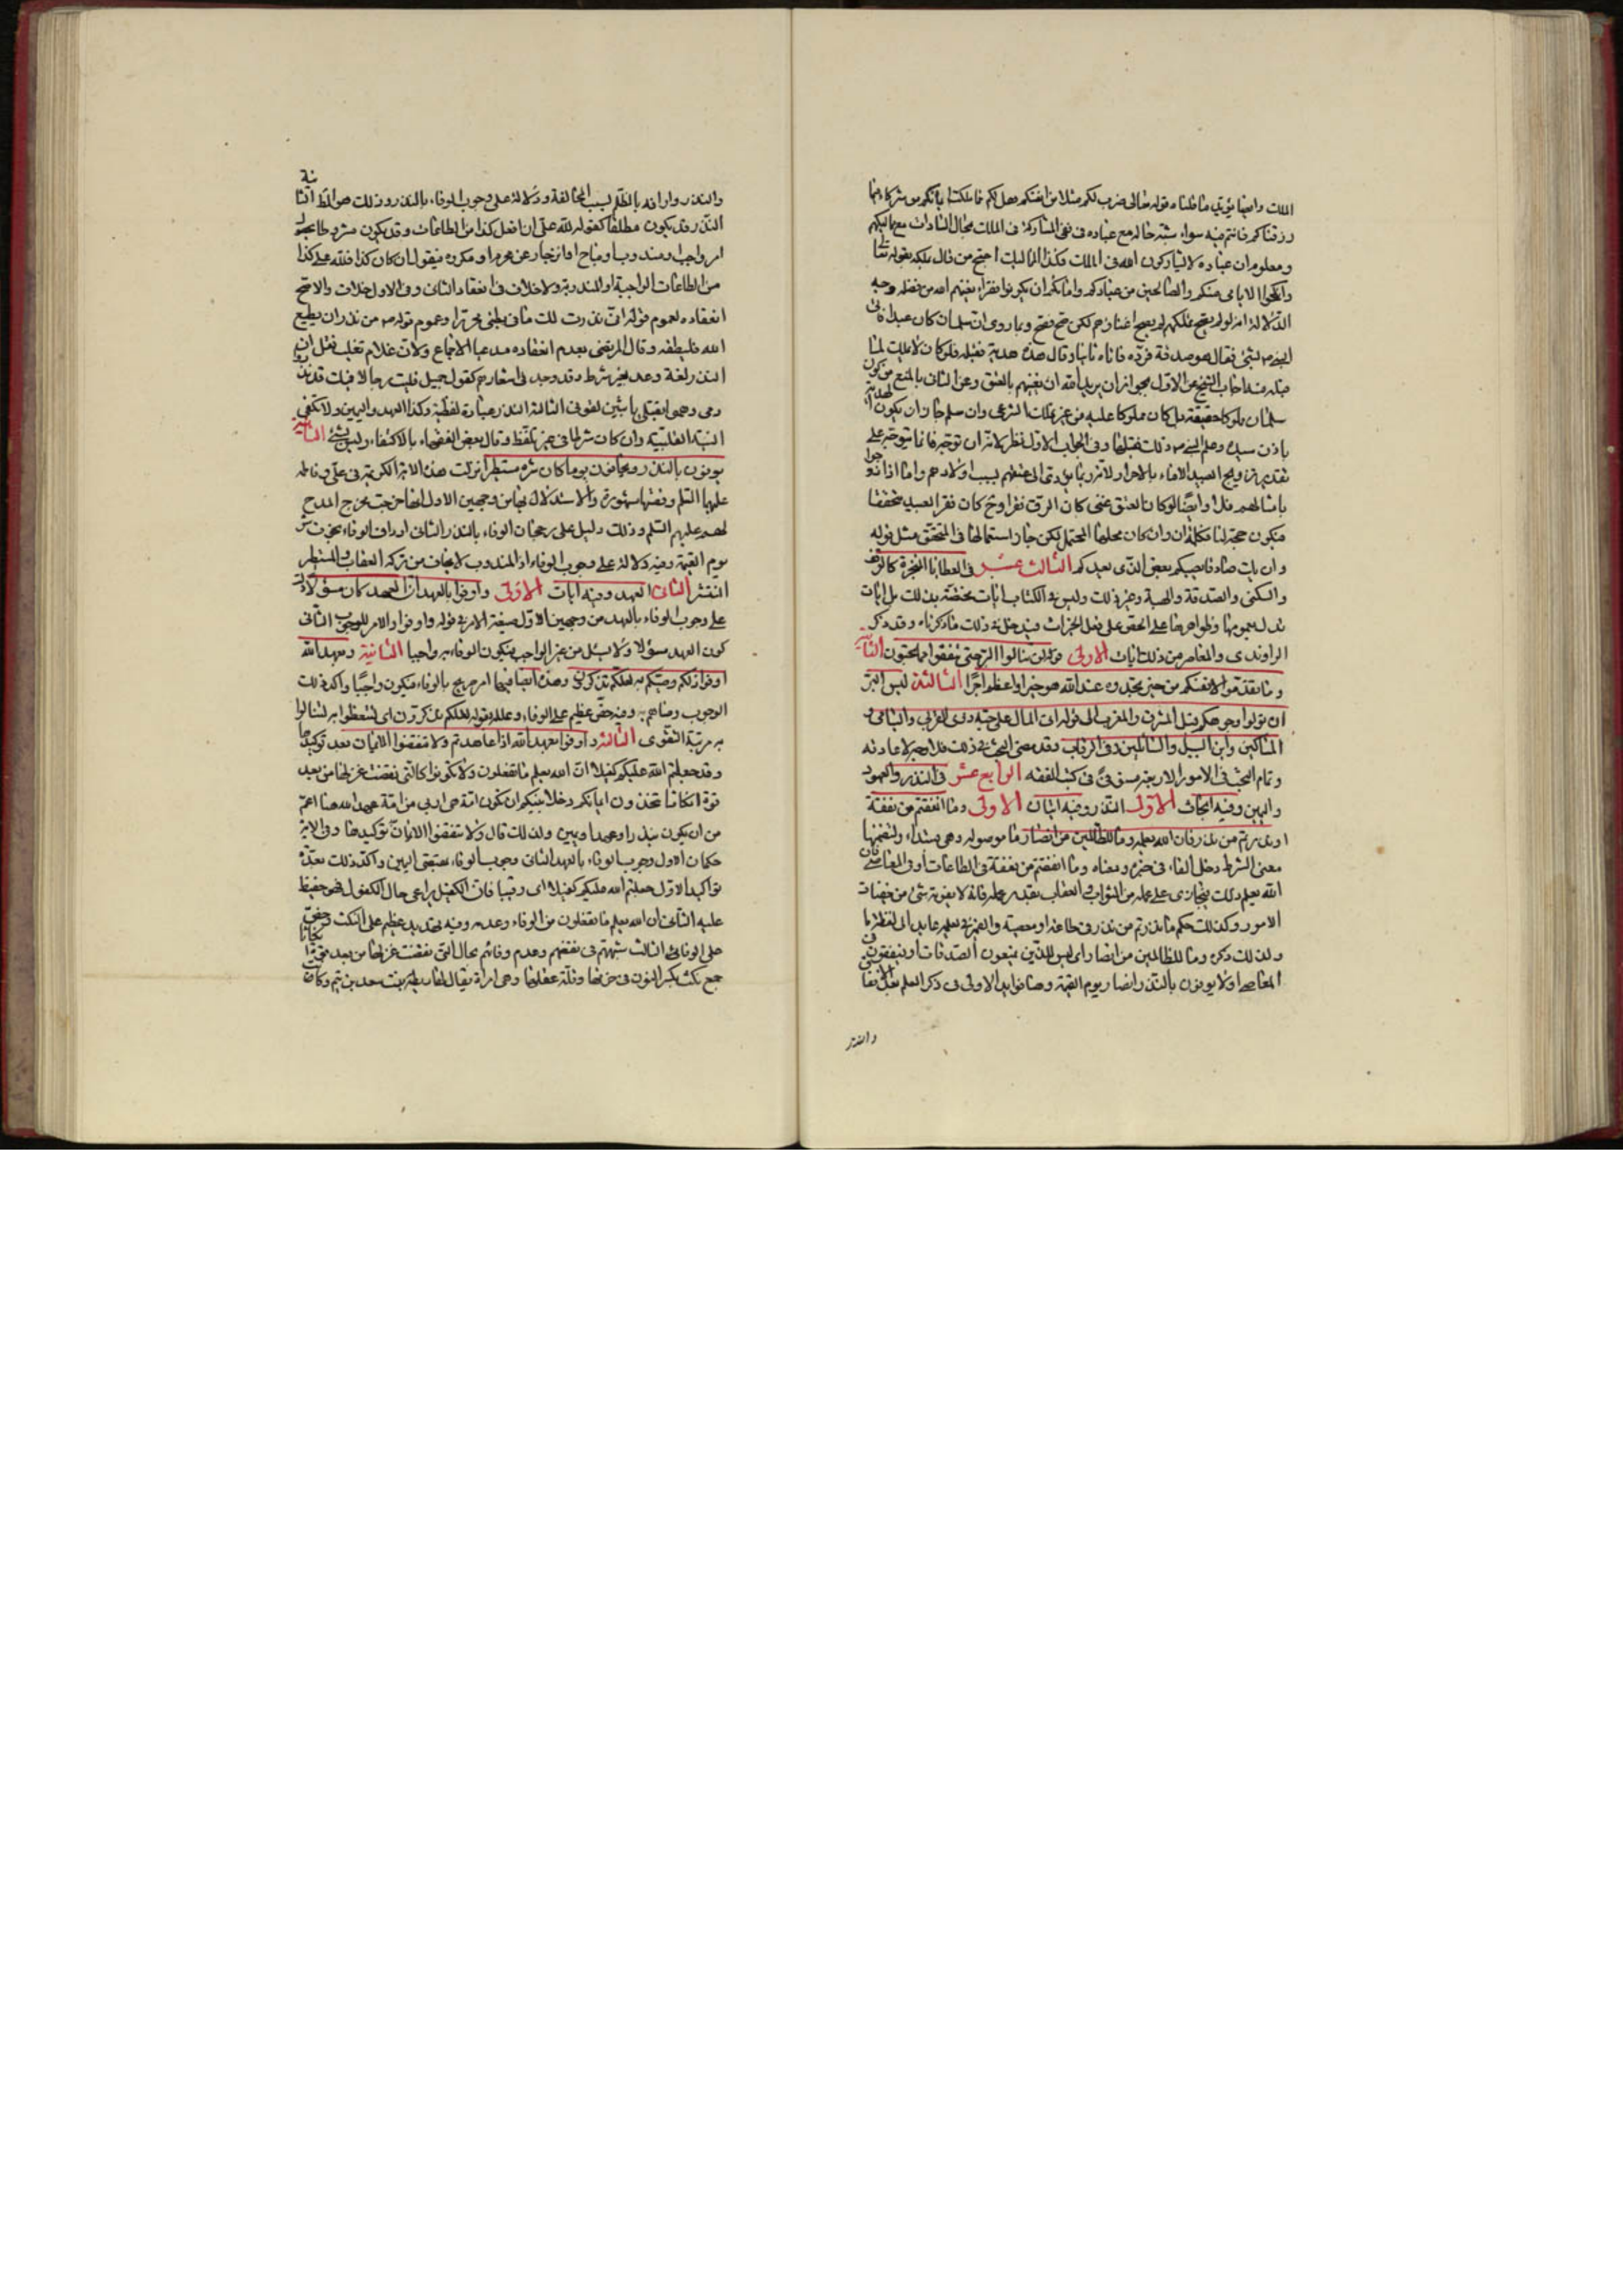 الملك وايضا يؤيد ما قلناه قوله تعالى ضرب لكم مثلا من انفسكم هل لكم مما ملكت ايمانكم من شركاء فيما
رزقناكم فانتم فيه سواء شبه حاله مع عباده فى نفى المشاركة فى الملك بحال السادات مع مماليكهم
ومعلوم ان عباده لا يشاركون الله فى الملك فكذا المماليك احتج من قال بملكه بقوله تعا
وانكحوا الايامى منكم والصالحين من عبادكم وامائكم ان يكونوا فقراء يغنهم الله من فضله وجه
الدلالة انه لو لم يصح تملكهم لم يصح اغناؤهم لكن صح فصح وبما روى ان سلمان كان عبدا فاتى
النبى ص بشئ فقال هو صدقة فرده فاتاه ثانيا وقال هذه هدية فقبله فلو كان لا يملك لما
قبله منه اجاب الشيخ عن الاول بجواز ان يريد الله ان يغنيهم بالعتق وعن الثانى بالمنع من كون
سلمان مملوكا حقيقة بل كان مملوكا عليه من غير الملك الشرعى وان سلم جاز ان يكون الهدية
باذن سيده وعلم النبى ص ذلك فقبلها وفى الجواب الاول نظر لانه ان توجه فانما يتوجه على
تقدير تزويج العبيد الاماء بالاحرار لانه ربما يؤدى الى عتقهم بسبب اولادهم واما اذا تزوجوا
بامثالهم فلا وايضا لو كان العتق غنى كان الرق فقرا وح كان فقر العبيد متحققا
فيكون حجة لنا فكلمة ان وان كان محلها المحتمل لكن جاز استعمالها فى المتحقق مثل قوله
وان يك صادقا يصبكم بعض الذى يعدكم الثالث عشر فى العطايا المنجزة كالوقف
والسكنى والصدقة والهبة وغير ذلك وليس فى الكتاب ايات مختصة بذلك بل ايات
تدل بعمومها وظواهرها على الحث على فعل الخيرات فيدخل فيه ذلك ما ذكرناه وقد ذكر
الراوندى والمعاصر من ذلك ايات الاولى قوله لن تنالوا البر حتى تنفقوا مما تحبون الثانية
وما تقدموا لانفسكم من خير تجدوه عند الله هو خيرا واعظم اجرا الثالثة ليس البر
ان تولوا وجوهكم قبل المشرق والمغرب الى قوله واتى المال على حبه ذوى القربى واليتامى و
المساكين وابن السبيل والسائلين وفى الرقاب وقد مضى البحث فى ذلك فلا وجه لاعادته
وتمام البحث فى الامور الاربعة مستوفى فى كتب الفقه الرابع عشر فى النذر والعهود
واليمين وفيه ابحاث الاول النذر وفيه ايتان الاولى وما انفقتم من نفقة
او نذرتم من نذر فان الله يعلمه وما للظالمين من انصار ما موصولة وهى مبتداء ولتضمنها
معنى الشرط دخل الفاء فى خبره ومعناه وما انفقتم من نفقة فى الطاعات او فى المعاصى فان
الله يعلم ذلك فيجازى على عمله من الثواب والعقاب بقدر عمله فانه لا يفوته شئ من خفيات
الامور وكذلك حكم ما نذرتم من نذر فى طاعة او معصية والضمير فى يعلمه عايد الى لفظة ما
ولذلك ذكره وما للظالمين من انصار اى ليس للذين يمنعون الصدقات او ينفقون فى
المعاصى او لا يوفون بالنذر انصار يوم القيمة وهنا فوايد الاولى فى ذكر العلم بعد الانفاق
والنذر
والنذر وارادفه بالظلم بسبب المخالفة ودلالة على وجوب الوفاء بالنذر وذلك هو المط الثانية
النذر قد يكون مطلقا كقوله لله على ان افعل كذا من الطاعات وقد يكون مشروطا بحصول
امر واجب او مندوب او مباح او انزجار عن محرم او مكروه فيقول ان كان كذا فلله على كذا
من الطاعات الواجبة او المندوبة ولا خلاف فى انعقاد الثانى وفى الاول خلاف والاصح
انعقاده لعموم قوله انى نذرت لك ما فى بطنى محررا وعموم قوله ص من نذر ان يطيع
الله فليطعه وقال المرتضى بعدم انعقاده مدعيا الاجماع ولان غلام ثعلب نقل ان
النذر لغة وعد بغير شرط وقد وجد فى اشعارهم كقول جميل فليت رجالا فيك قد نذروا
دمى وهموا بقتلى يا بثين لقونى الثالثة النذر عبارة لفظية وكذا العهد واليمين ولا تكفى
النية القلبية وان كان شرطا فى غير تلفظ وقال بعض الفقهاء بالاكتفاء وليس بشئ الثانية
يوفون بالنذر ويخافون يوما كان شره مستطيرا نزلت هذه الاية الكريمة فى على وفاطمة
عليهما السلم وقصتها مشهورة والاستدلال بها من وجهين الاول انها خرجت مخرج المدح
لهم عليهم السلم وذلك دليل على رجحان الوفاء بالنذر الثانى اردف الوفاء بخوف شر
يوم القيمة وفيه دلالة على وجوب الوفاء اذ المندوب لا يخاف من تركه العقاب والمستطير
المنتشر الثانى العهد وفيه ايات الاولى واوفوا بالعهد ان العهد كان مسؤلا دلت
على وجوب الوفاء بالعهد من وجهين الاول صيغة الامر فى قوله واوفوا والامر للوجوب الثانى
كون العهد مسؤلا ولا يسئل من غير الواجب فيكون الوفاء به واجبا الثانية وبعهد الله
اوفوا ذلكم وصيكم به لعلكم تذكرون وهذه ايضا فيها امر صريح بالوفاء فيكون واجبا واكد ذلك
الوجوب وصاهم به وفيه حض عظيم على الوفاء وعلله بقوله لعلكم تذكرون اى لتتعظوا به لتنالوا
به مرتبة التقوى الثالثة واوفوا بعهد الله اذا عاهدتم ولا تنقضوا الايمان بعد توكيدها
وقد جعلتم الله عليكم كفيلا ان الله يعلم ما تفعلون ولا تكونوا كالتى نقضت غزلها من بعد
قوة انكاثا تتخذون ايمانكم دخلا بينكم ان تكون امة هى اربى من امة عهد الله هنا اعم
من ان يكون نذرا وعهدا ويمين ولذلك قال ولا تنقضوا الايمان بعد توكيدها وفى الاية
حكمان الاول وجوب الوفاء بالعهد الثانى وجوب الوفاء بمتعلق اليمين واكد ذلك بعدة
تواكيد الاول جعلتم الله عليكم كفيلا اى رقيبا فان الكفيل يراعى حال المكفول فهو حفيظ
عليه الثانى ان الله يعلم ما تفعلون من الوفاء وعدمه وفيه تهديد عظيم على النكث وحض
على الوفاء الثالث شبههم فى نقضهم وعدم وفائهم بحال التى نقضت غزلها من بعد قوة انكاثا
جمع نكث بكسر النون فى خرقها وقلة عقلها وهى امراة يقال لها ريطة بنت سعد بن تيم وكانت